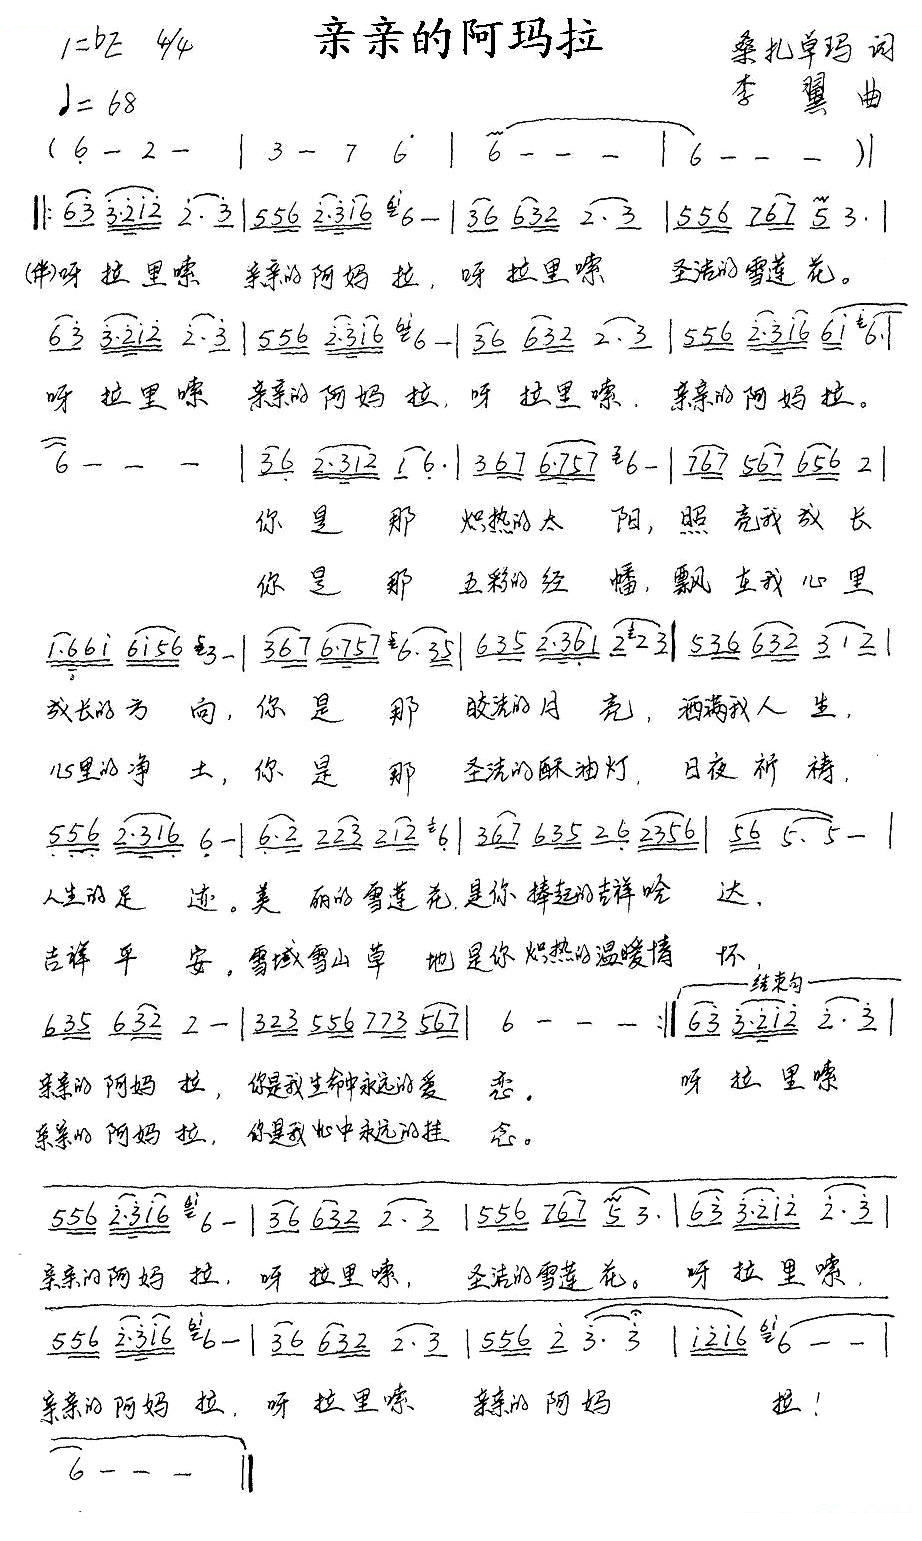 亲亲的阿玛拉
1=bE 4/4
桑扎草玛 词
李翼 曲
♩=68
( 6 - 2 - | 3 - 7 6 | 6 - - - | 6 - - - )|
‖: 63 3·212 2·3 | 556 2·316 6 - | 36 632 2·3 | 556 767 5 3· |
(伴)呀拉里嗦 亲亲的阿妈拉, 呀拉里嗦 圣洁的雪莲花。
63 3·212 2·3 | 556 2·316 6 - | 36 632 2·3 | 556 2·316 61 6· |
呀拉里嗦 亲亲的阿妈拉, 呀拉里嗦. 亲亲的阿妈拉。
6 - - - | 36 2·312 16· | 367 6·757 6 - | 767 567 656 2 |
你是那 炽热的太阳, 照亮我成长
你是那 五彩的经幡, 飘在我心里
1·661 6156 3 - | 367 6·757 6·35 | 635 2·361 223 | 536 632 312 |
成长的方向, 你是那 皎洁的月亮, 洒满我人生,
心里的净土, 你是那 圣洁的酥油灯, 日夜祈祷,
556 2·316 6 - | 6·2 223 212 6 | 367 635 26 2356 | 56 5·5 - |
人生的足迹。美丽的雪莲花, 是你捧起的吉祥哈达,
吉祥平安。雪域雪山草地是你炽热的温暖情怀,
结束句
635 632 2 - | 323 556 773 567 | 6 - - - :‖ 63 3·212 2·3 |
亲亲的阿妈拉, 你是我生命中永远的爱恋。 呀拉里嗦
亲亲的阿妈拉, 你是我心中永远的挂念。
556 2·316 6 - | 36 632 2·3 | 556 767 5 3· | 63 3·212 2·3 |
亲亲的阿妈拉, 呀拉里嗦, 圣洁的雪莲花。 呀拉里嗦,
556 2·316 6 - | 36 632 2·3 | 556 2 3·3 | 1216 6 - - |
亲亲的阿妈拉, 呀拉里嗦 亲亲的阿妈拉!
6 - - - ‖